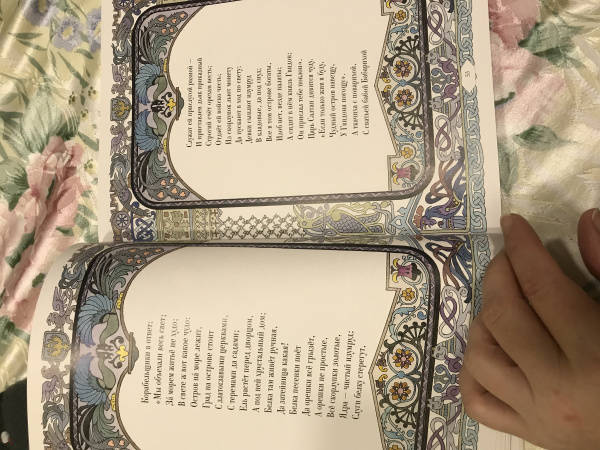 Корабельщики в ответ:
«Мы объехали весь свет;
За морем житьё не худо;
В свете ж вот какое чудо:
Остров на море лежит,
Град на острове стоит
С златоглавыми церквами,
С теремами да садами;
Ель растёт перед дворцом,
А под ней хрустальный дом;
Белка там живёт ручная,
Да затейница какая!
Белка песенки поёт
Да орешки всё грызёт,
А орешки не простые,
Всё скорлупки золотые,
Ядра — чистый изумруд;
Слуги белку стерегут,
Служат ей прислугой разной —
И приставлен дьяк приказный
Строгий счёт орехам весть;
Отдаёт ей войско честь;
Из скорлупок льют монету
Да пускают в ход по свету;
Девки сыплют изумруд
В кладовые, да под спуд;
Все в том острове богаты,
Изоб нет, везде палаты;
А сидит в нём князь Гвидон;
Он прислал тебе поклон».
Царь Салтан дивится чуду.
«Если только жив я буду,
Чудный остров навещу,
У Гвидона погощу».
А ткачиха с поварихой,
С сватьей бабой Бабарихой
53